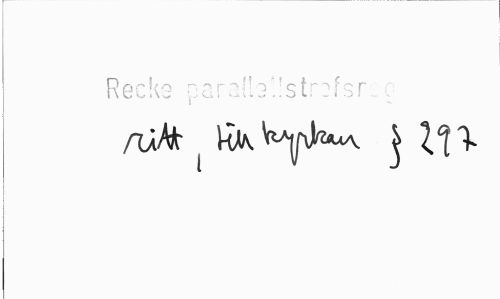 Recke parallellstrofsreg
ritt, till kyrkan § 297